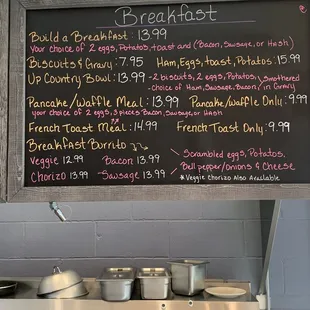 Breakfast
Build a Breakfast: 13.99
Your choice of 2 eggs, Potatos, toast and (Bacon, Sausage, or Hash)
Biscuits & Gravy: 7.95 Ham, Eggs, toast, Potatos: 15.99
Up Country Bowl: 13.99 -2 biscuits, 2 eggs, Potatos, Smothered
-choice of Ham, Sausage, Bacon in Gravy
Pancake/Waffle Meal: 13.99 Pancake/Waffle Only: 9.99
Your choice of 2 eggs, 3 pieces Bacon, Sausage, or Hash
French Toast Meal: 14.99 French Toast Only: 9.99
Breakfast Burrito
Veggie 12.99 Bacon 13.99 Scrambled eggs, Potatos,
Bell pepper/onions & Cheese
Chorizo 13.99 Sausage 13.99 *Veggie Chorizo Also Available